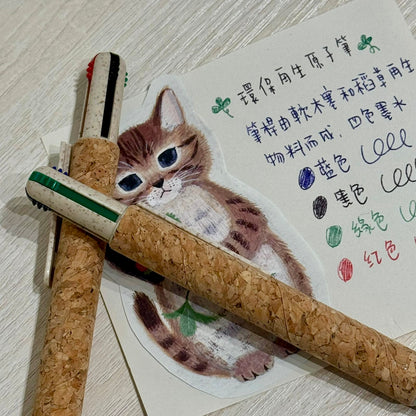 環保再生原子筆
筆桿由軟木塞和稻草再生
物料而成，四色墨水
藍色
黑色
綠色
紅色